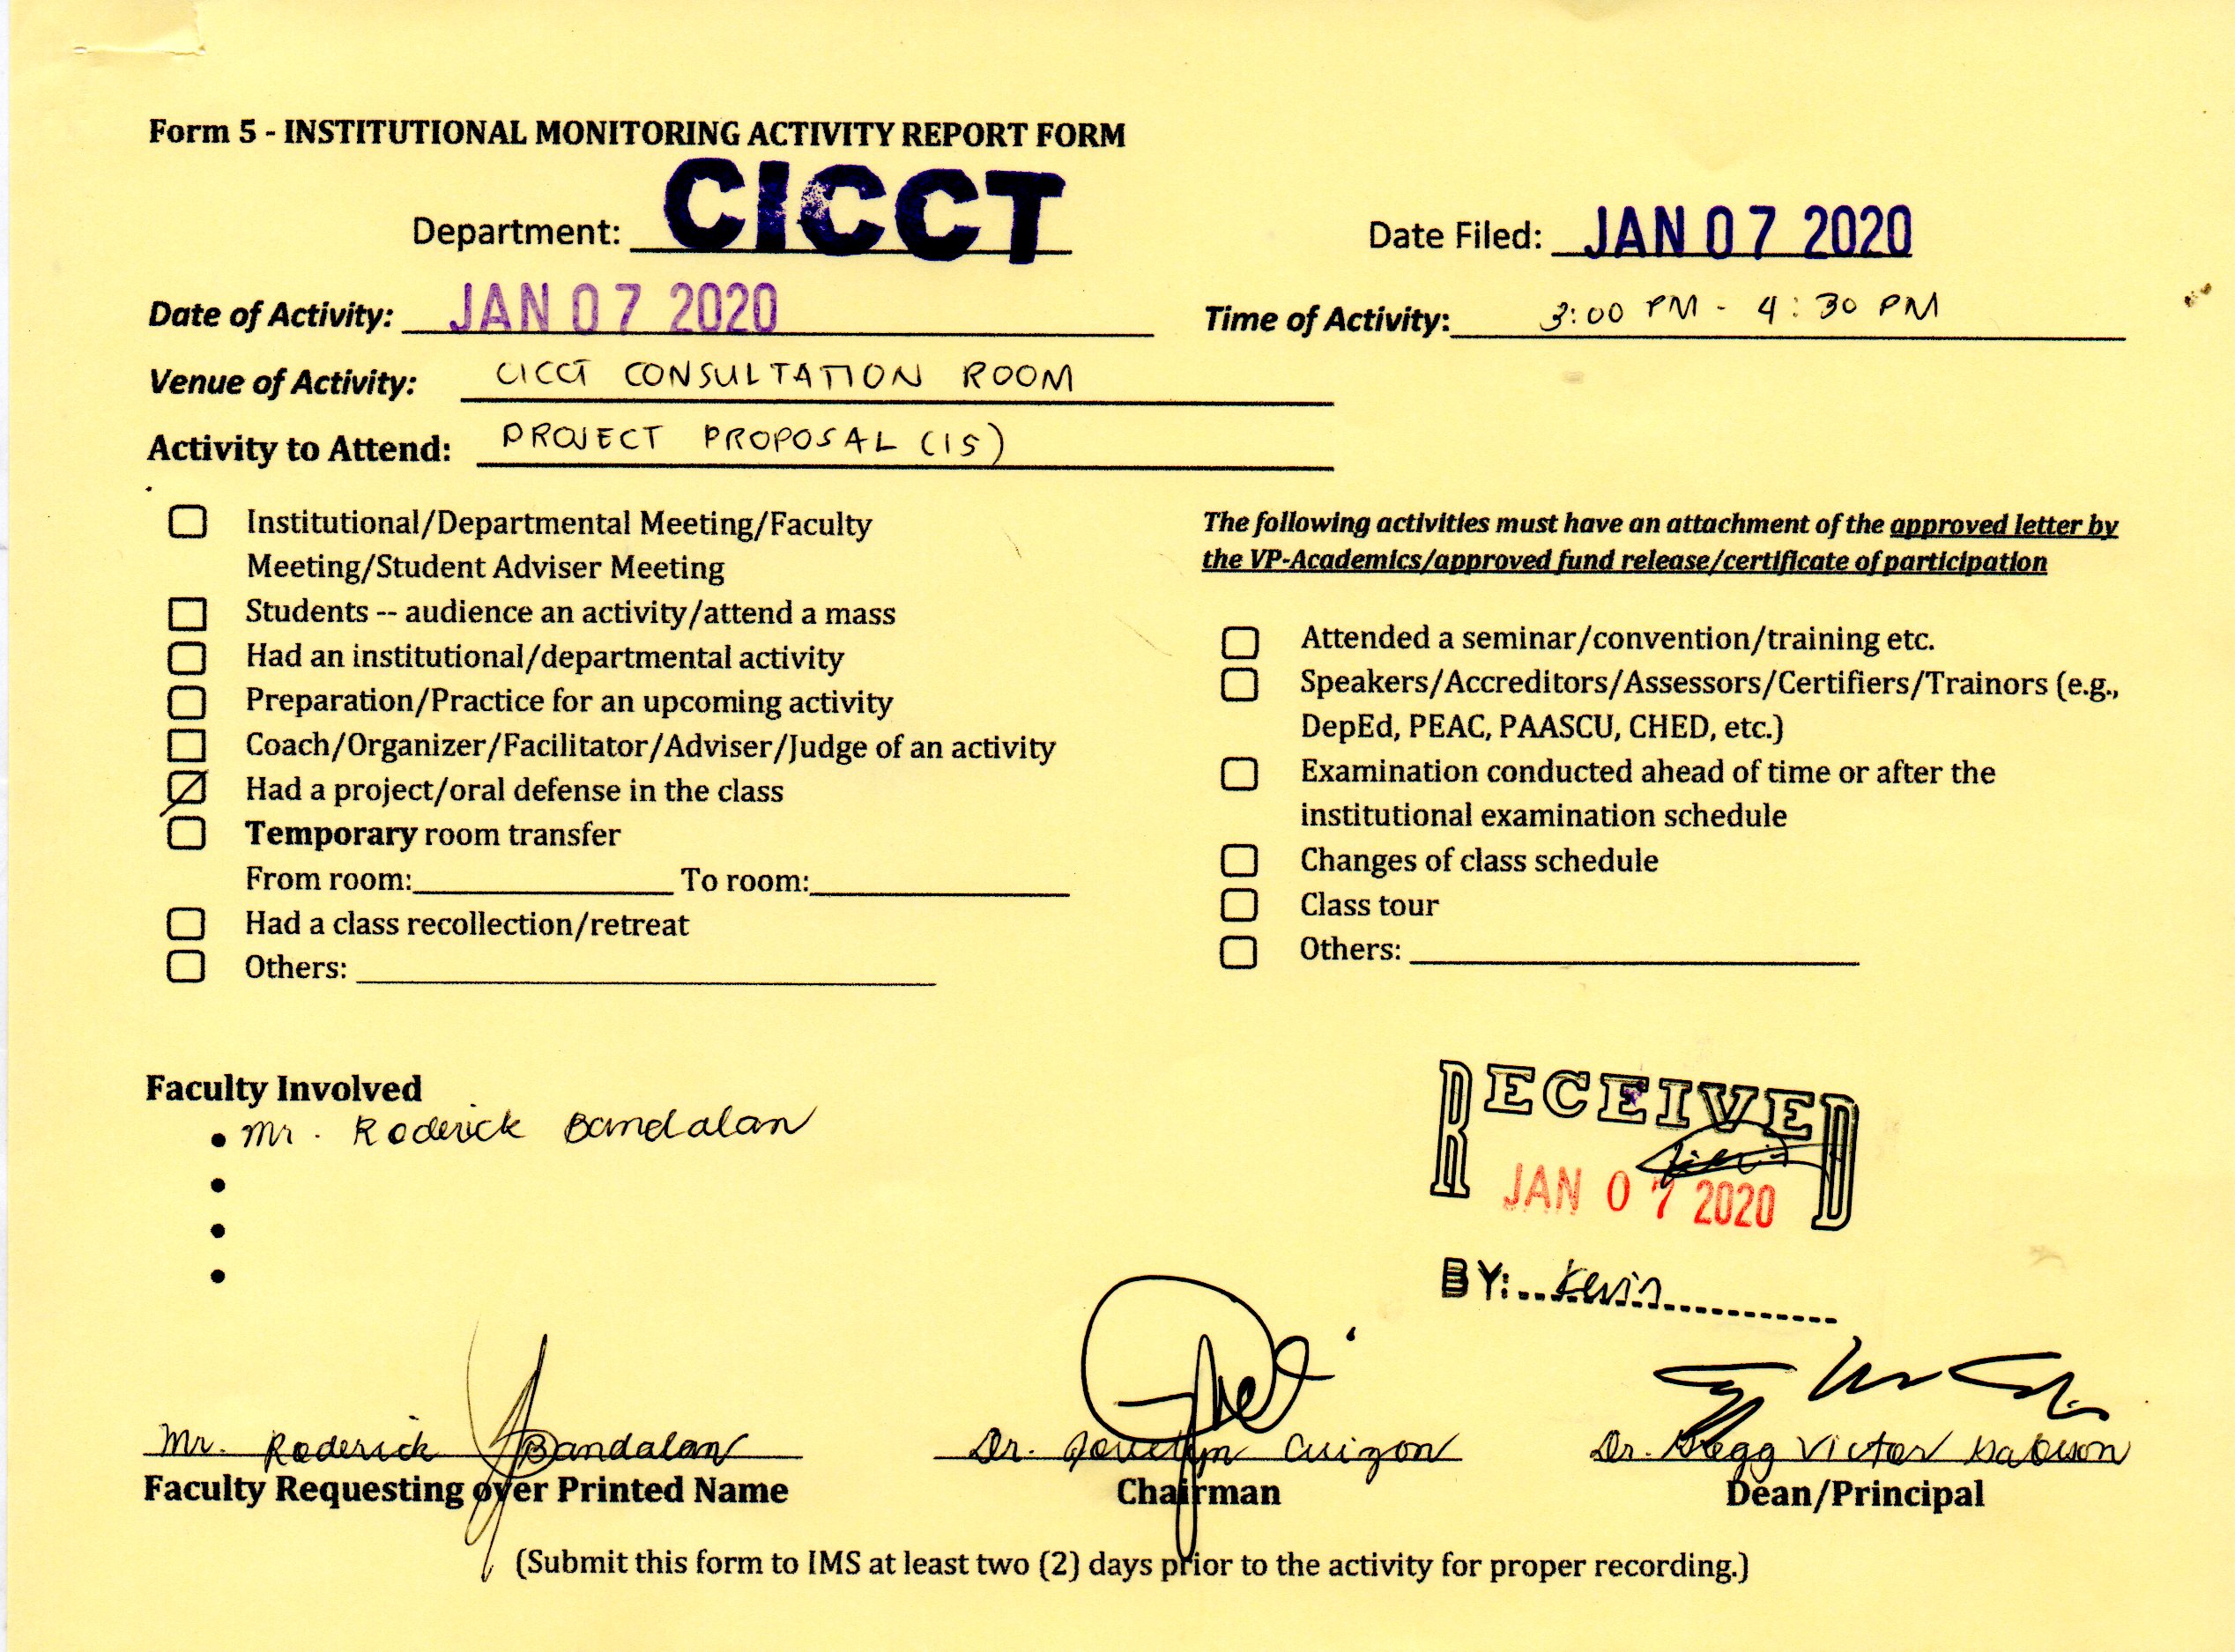 Form 5 - INSTITUTIONAL MONITORING ACTIVITY REPORT FORM
Department: CICCT
Date Filed: JAN 07 2020
Date of Activity: JAN 07 2020
Time of Activity: 3:00 PM - 4:30 PM
Venue of Activity: CICCT CONSULTATION ROOM
Activity to Attend: PROJECT PROPOSAL (IS)
Institutional/Departmental Meeting/Faculty
Meeting/Student Adviser Meeting
Students -- audience an activity/attend a mass
Had an institutional/departmental activity
Preparation/Practice for an upcoming activity
Coach/Organizer/Facilitator/Adviser/Judge of an activity
Had a project/oral defense in the class
Temporary room transfer
From room: To room:
Had a class recollection/retreat
Others:
The following activities must have an attachment of the approved letter by
the VP-Academics/approved fund release/certificate of participation
Attended a seminar/convention/training etc.
Speakers/Accreditors/Assessors/Certifiers/Trainors (e.g.,
DepEd, PEAC, PAASCU, CHED, etc.)
Examination conducted ahead of time or after the
institutional examination schedule
Changes of class schedule
Class tour
Others:
Faculty Involved
• Mr. Roderick Bandalan
•
•
•
RECEIVED
JAN 07 2020
BY: Kevin
Mr. Roderick Bandalan
Faculty Requesting over Printed Name
Dr. Jovelyn Cuizon
Chairman
Dr. Gregg Victor Gabison
Dean/Principal
(Submit this form to IMS at least two (2) days prior to the activity for proper recording.)